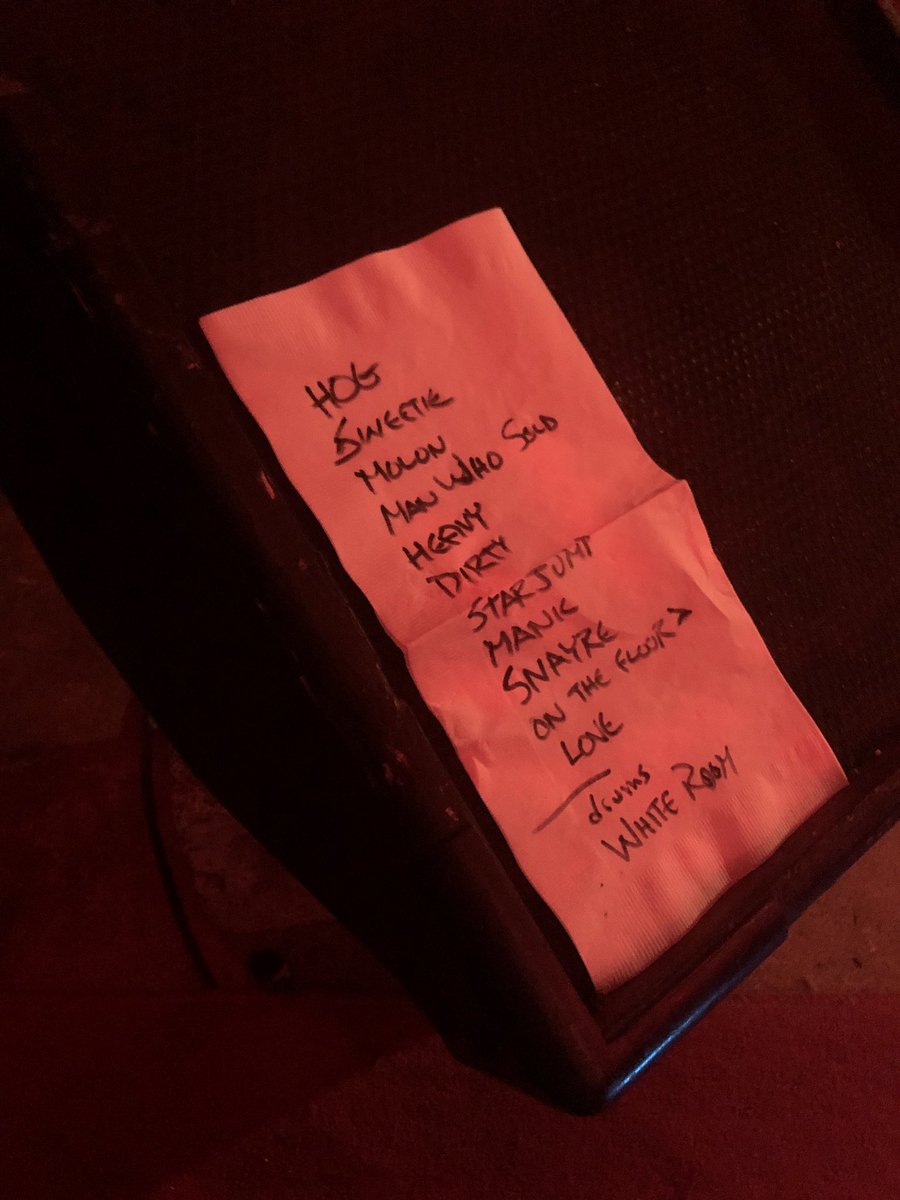 HOG
SWEETIE
MOLON
MAN WHO SOLD
HEAVY
DIRTY
STARJUMP
MANIC
SNAYRE
ON THE FLOOR >
LOVE
drums
WHITE ROOM